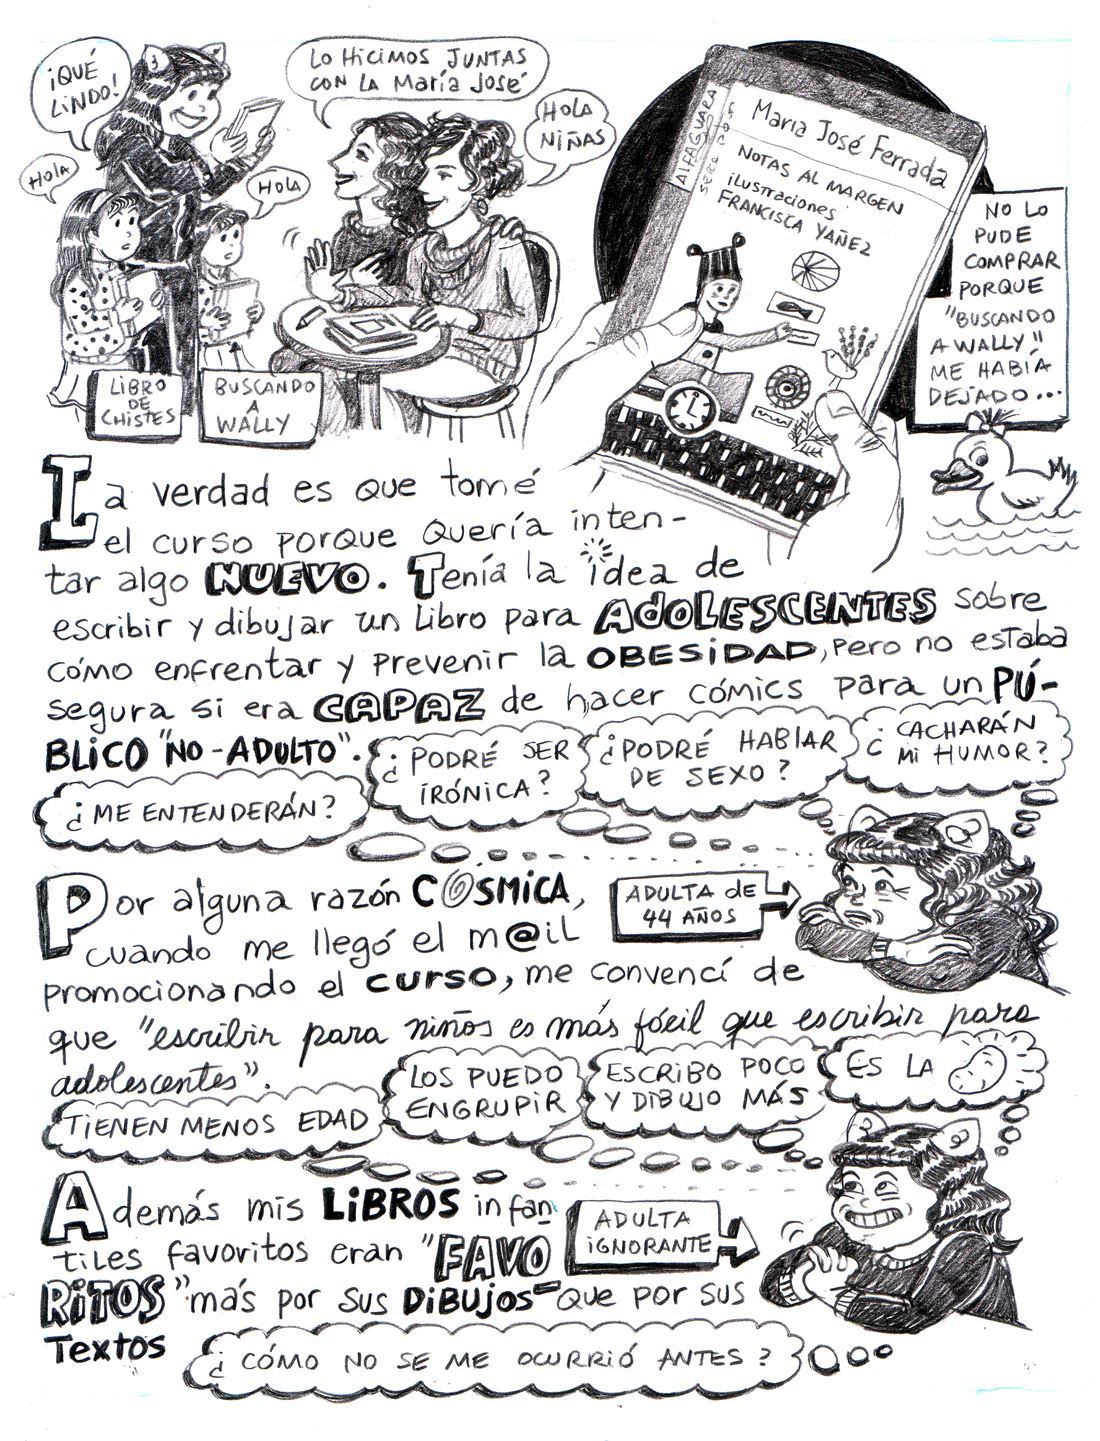 ¡QUÉ
LINDO!
LO HICIMOS JUNTAS
CON LA MaRía JOSÉ
HOLA
NIÑAS
HOLA
HOLA
LIBRO
DE
CHISTES
BUSCANDO
A
WALLY
ALFAGUARA
María José Ferrada
NOTAS AL MARGEN
iLUSTRACIONES
FRANCISCA YAÑEZ
NO LO
PUDE
COMPRAR
PORQUE
"BUSCANDO
A WALLY"
ME HABÍA
DEJADO...
La verdad es que tomé
el curso porque quería inten-
tar algo NUEVO. Tenía la idea de
escribir y dibujar un libro para ADOLESCENTES sobre
cómo enfrentar y prevenir la OBESIDAD, pero no estaba
segura si era CAPAZ de hacer cómics para un PÚ-
BLICO "NO-ADULTO".
¿ME ENTENDERÁN?
¿PODRÉ SER
IRÓNICA?
¿PODRÉ HABLAR
DE SEXO?
¿CACHARÁN
Mi HUMOR?
Por alguna razón CÓSMICA,
cuando me llegó el m@iL
promocionando el CURSO, me convencí de
que "escribir para niños es más fácil que escribir para
adolescentes".
ADULTA de
44 AÑOS
TIENEN MENOS EDAD
LOS PUEDO
ENGRUPIR
ESCRIBO POCO
Y DIBUJO MÁS
ES LA
Además mis LIBROS infan
tiles favoritos eran "FAVO
RITOS" más por sus DIBUJOS que por sus
Textos
ADULTA
IGNORANTE
¿CÓMO NO SE ME OCURRIÓ ANTES?